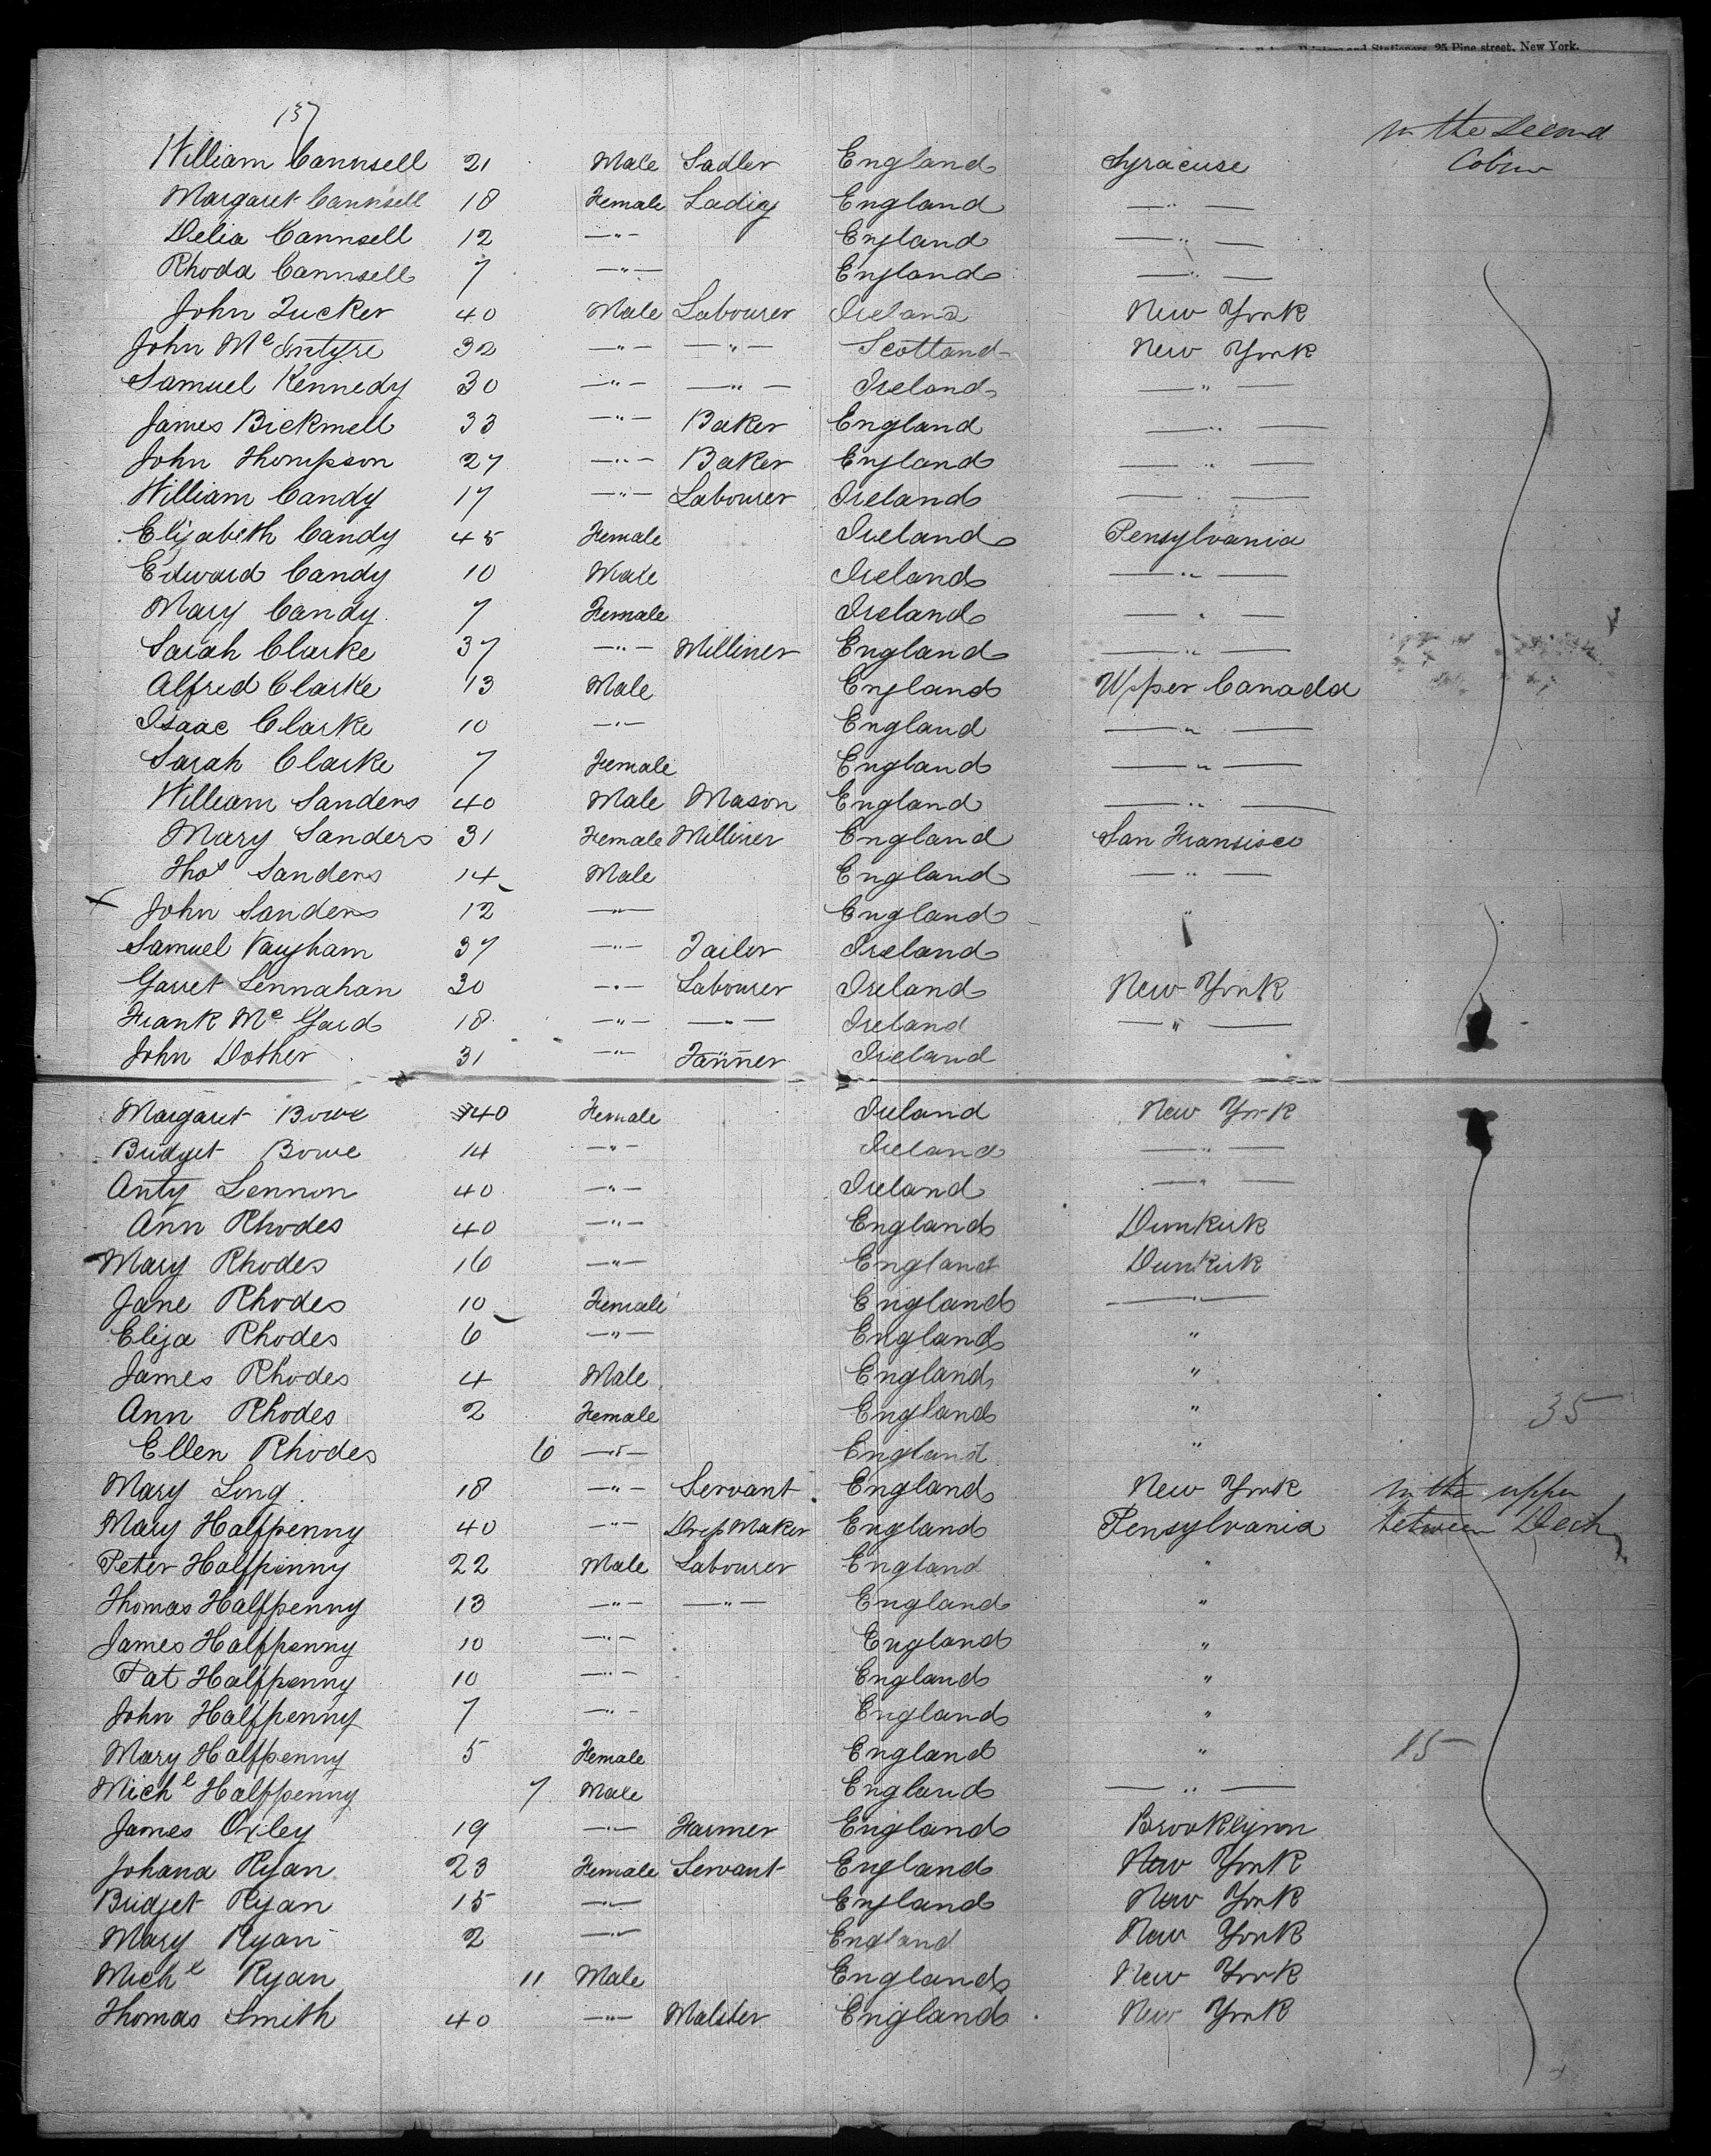 Printers and Stationers, 25 Pine street, New York.
137
In the Second
William Cannsell 21 Male Sadler England Syracuse Cabin
Margaret Cannsell 18 Female Ladiy England —"—
Delia Cannsell 12 —"— England —"—
Rhoda Cannsell 7 —"— England —"—
John Tucker 40 Male Labourer Ireland New York
John Mc Entyre 32 —"— —"— Scotland New York
Samuel Kennedy 30 —"— —"— Ireland —"—
James Bickmell 33 —"— Baker England —"—
John Thompson 27 —"— Baker England —"—
William Candy 17 —"— Labourer Ireland —"—
Elizabeth Candy 45 Female Ireland Pensylvania
Edward Candy 10 Male Ireland —"—
Mary Candy 7 Female Ireland —"—
Sarah Clarke 37 —"— Milliner England —"—
Alfred Clarke 13 Male England Upper Canada
Isaac Clarke 10 —"— England —"—
Sarah Clarke 7 Female England —"—
William Sanders 40 Male Mason England —"—
Mary Sanders 31 Female Milliner England San Fransisco
Thos Sanders 14 Male England —"—
x John Sanders 12 —"— England "
Samuel Vaugham 37 —"— Tailor Ireland
Garret Lennahan 30 —"— Labourer Ireland New York
Frank Mc Gard 18 —"— —"— Ireland —"—
John Dother 31 —"— Tanner Ireland
Margaret Bowe 40 Female Ireland New York
Bridget Bowe 14 —"— Ireland —"—
Anty Lennon 40 —"— Ireland —"—
Ann Rhodes 40 —"— England Dunkirk
Mary Rhodes 16 —"— England Dunkirk
Jane Rhodes 10 Female England —"—
Eliza Rhodes 6 —"— England "
James Rhodes 4 Male England "
Ann Rhodes 2 Female England " 35
Ellen Rhodes 6 —"— England "
Mary Long 18 —"— Servant England New York In the upper
Mary Halfpenny 40 —"— Dress Maker England Pensylvania between Deck
Peter Halfpenny 22 Male Labourer England "
Thomas Halfpenny 13 —"— —"— England "
James Halfpenny 10 —"— England "
Pat Halfpenny 10 —"— England "
John Halfpenny 7 —"— England "
Mary Halfpenny 5 Female England " 15
Michl Halfpenny 7 Male England —"—
James Oxley 19 —"— Farmer England Brooklynn
Johana Ryan 23 Female Servant England New York
Bridget Ryan 15 —"— England New York
Mary Ryan 2 —"— England New York
Michl Ryan 11 Male England New York
Thomas Smith 40 —"— Malster England New York